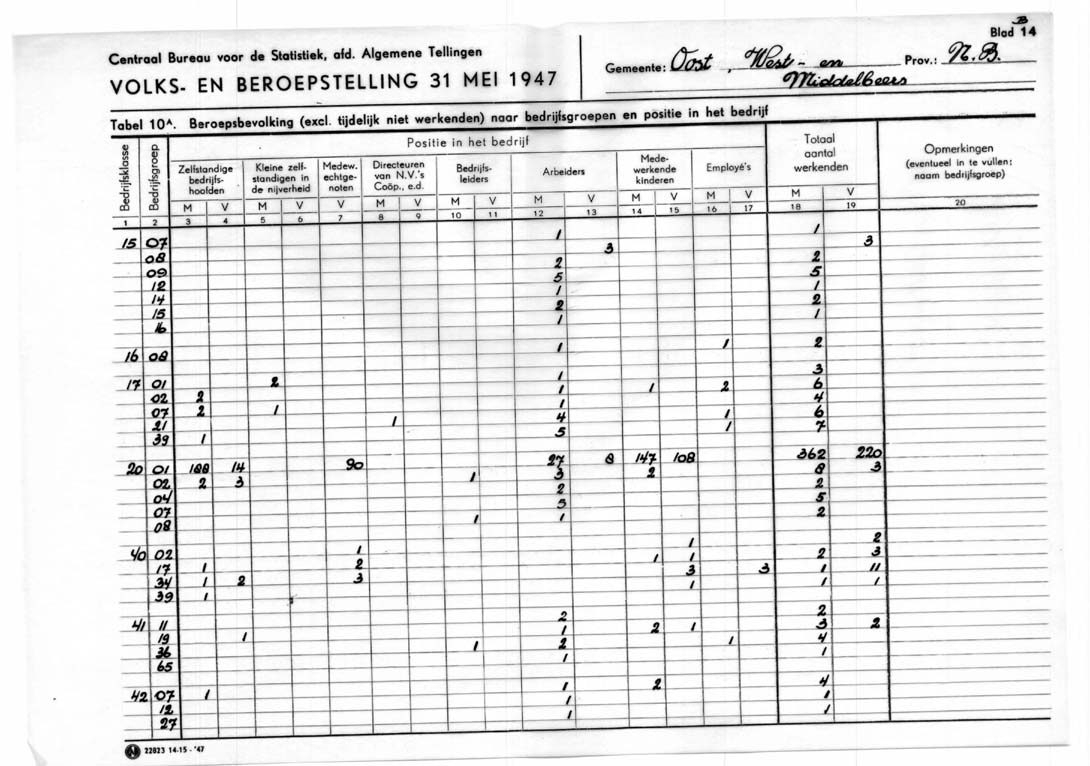 B
Blad 14
Centraal Bureau voor de Statistiek, afd. Algemene Tellingen
VOLKS- EN BEROEPSTELLING 31 MEI 1947
Gemeente: Oost, West- en Middelbeers Prov.: N.B.
Tabel 10A. Beroepsbevolking (excl. tijdelijk niet werkenden) naar bedrijfsgroepen en positie in het bedrijf
Bedrijfsklasse
Bedrijfsgroep
Positie in het bedrijf
Zelfstandige bedrijfs-hoofden
Kleine zelf-standigen in de nijverheid
Medew. echtge-noten
Directeuren van N.V.'s Coöp., e.d.
Bedrijfs-leiders
Arbeiders
Mede-werkende kinderen
Employé's
Totaal aantal werkenden
Opmerkingen (eventueel in te vullen: naam bedrijfsgroep)
M V M V V M V M V M V M V M V M V
1 2 3 4 5 6 7 8 9 10 11 12 13 14 15 16 17 18 19 20
15 07 1 1
08 3 3
09 2 2
12 5 5
14 1 1
15 2 2
16 1 1
16 08 1 1 2
17 01 2 1 3
02 2 1 1 2 6
07 2 1 1 4
21 1 4 1 6
39 1 5 1 7
20 01 188 14 90 27 8 147 108 362 220
02 2 3 1 3 2 8 3
04 2 2
07 5 5
08 1 1 2
40 02 1 1 2
17 1 2 1 1 2 3
34 1 2 3 3 3 1 11
39 1 1 1 1
41 11 2 2
19 1 1 2 1 3 2
36 1 2 1 4
65 1 1
42 07 1 1 2 4
12 1 1
27 1 1
22823 14-15-'47